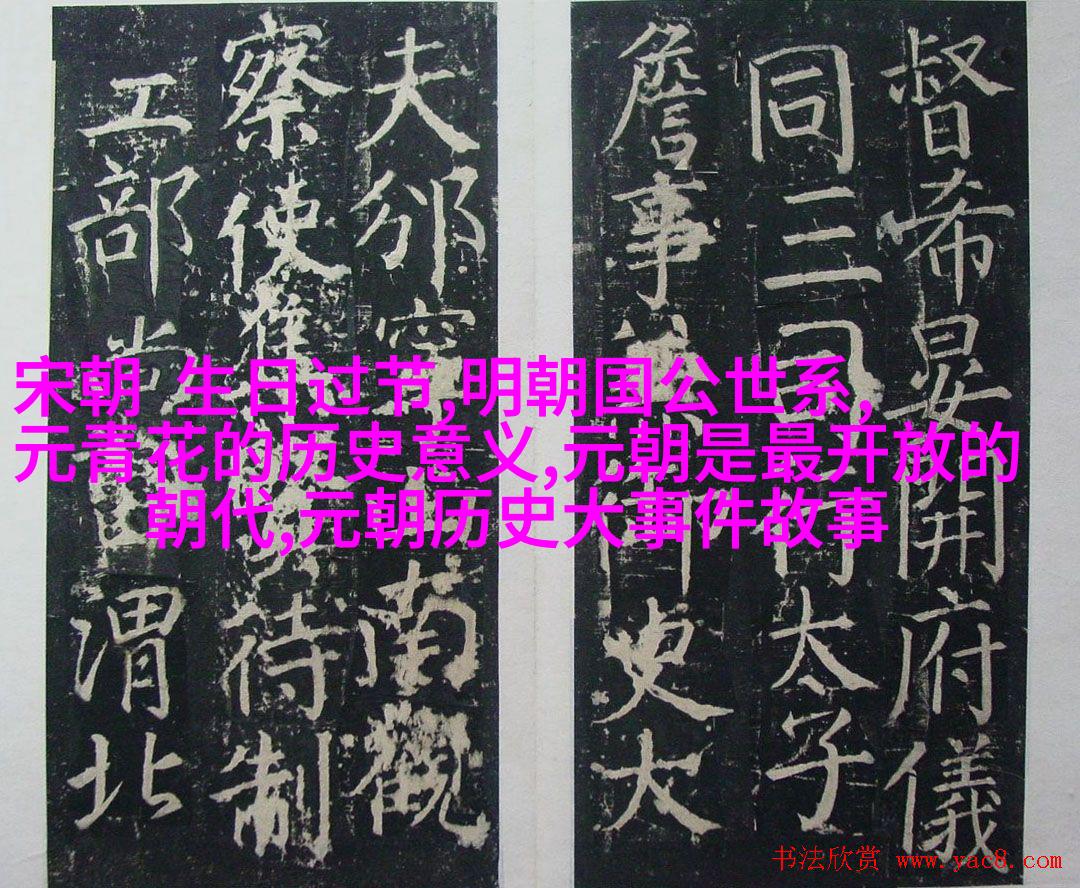 宋朝 生日过节,明朝国公世系,
元青花的历史意义,元朝是最开放的
朝代,元朝历史大事件故事
督希晏開府儀
同三司太子
詹事史大
夫邠寧南觀
察使待制
工部尚渭北
书法欣赏 www.yac8.com